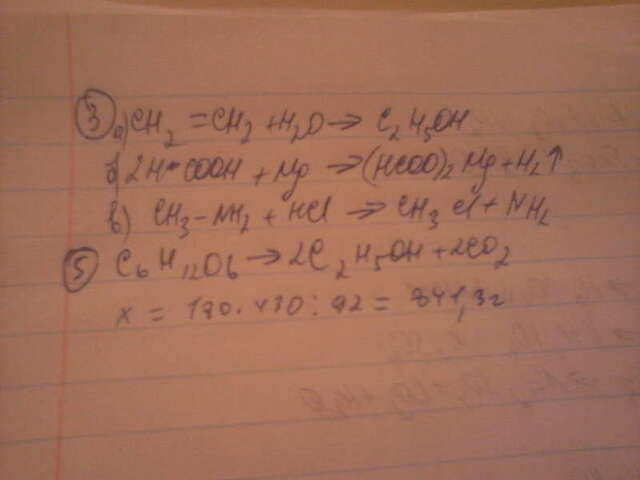 ③ а) CH₂=CH₂ + H₂O → C₂H₅OH
б) 2H-COOH + Mg → (HCOO)₂Mg + H₂↑
в) CH₃-NH₂ + HCl → CH₃Cl + NH₂
⑤ C₆H₁₂O₆ → 2C₂H₅OH + 2CO₂
x = 180·430 : 92 = 841,3г